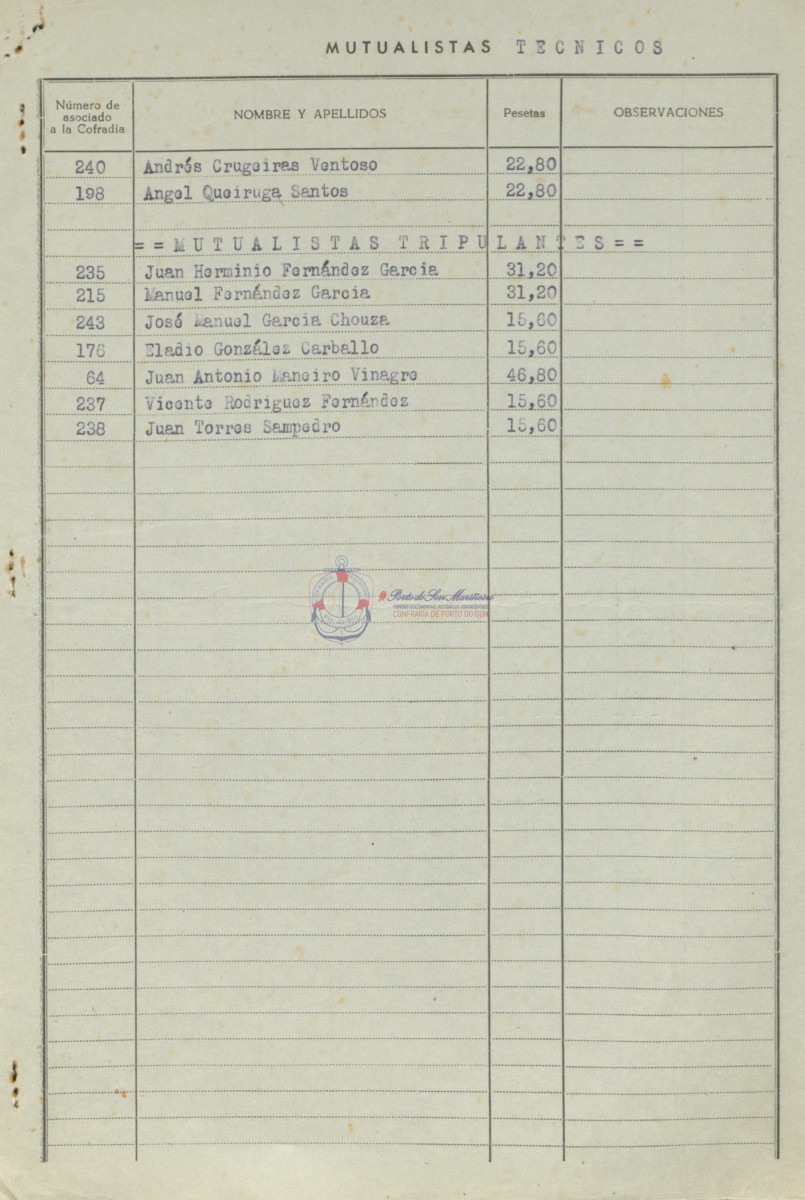 MUTUALISTAS TECNICOS
Número de asociado a la Cofradía NOMBRE Y APELLIDOS Pesetas OBSERVACIONES
240 Andrés Crugeiras Ventoso 22,80
198 Angel Queiruga Santos 22,80
==MUTUALISTAS TRIPULANTES==
235 Juan Herminio Fernández Garcia 31,20
215 Manuel Fernández Garcia 31,20
243 José Manuel Garcia Chouza 15,60
176 Eladio González Carballo 15,60
64 Juan Antonio Maneiro Vinagre 46,80
237 Vicente Rodriguez Fernández 15,60
238 Juan Torres Sampedro 15,60
Porto do Son Mariñeiro
CONFRARÍA DE PORTO DO SON